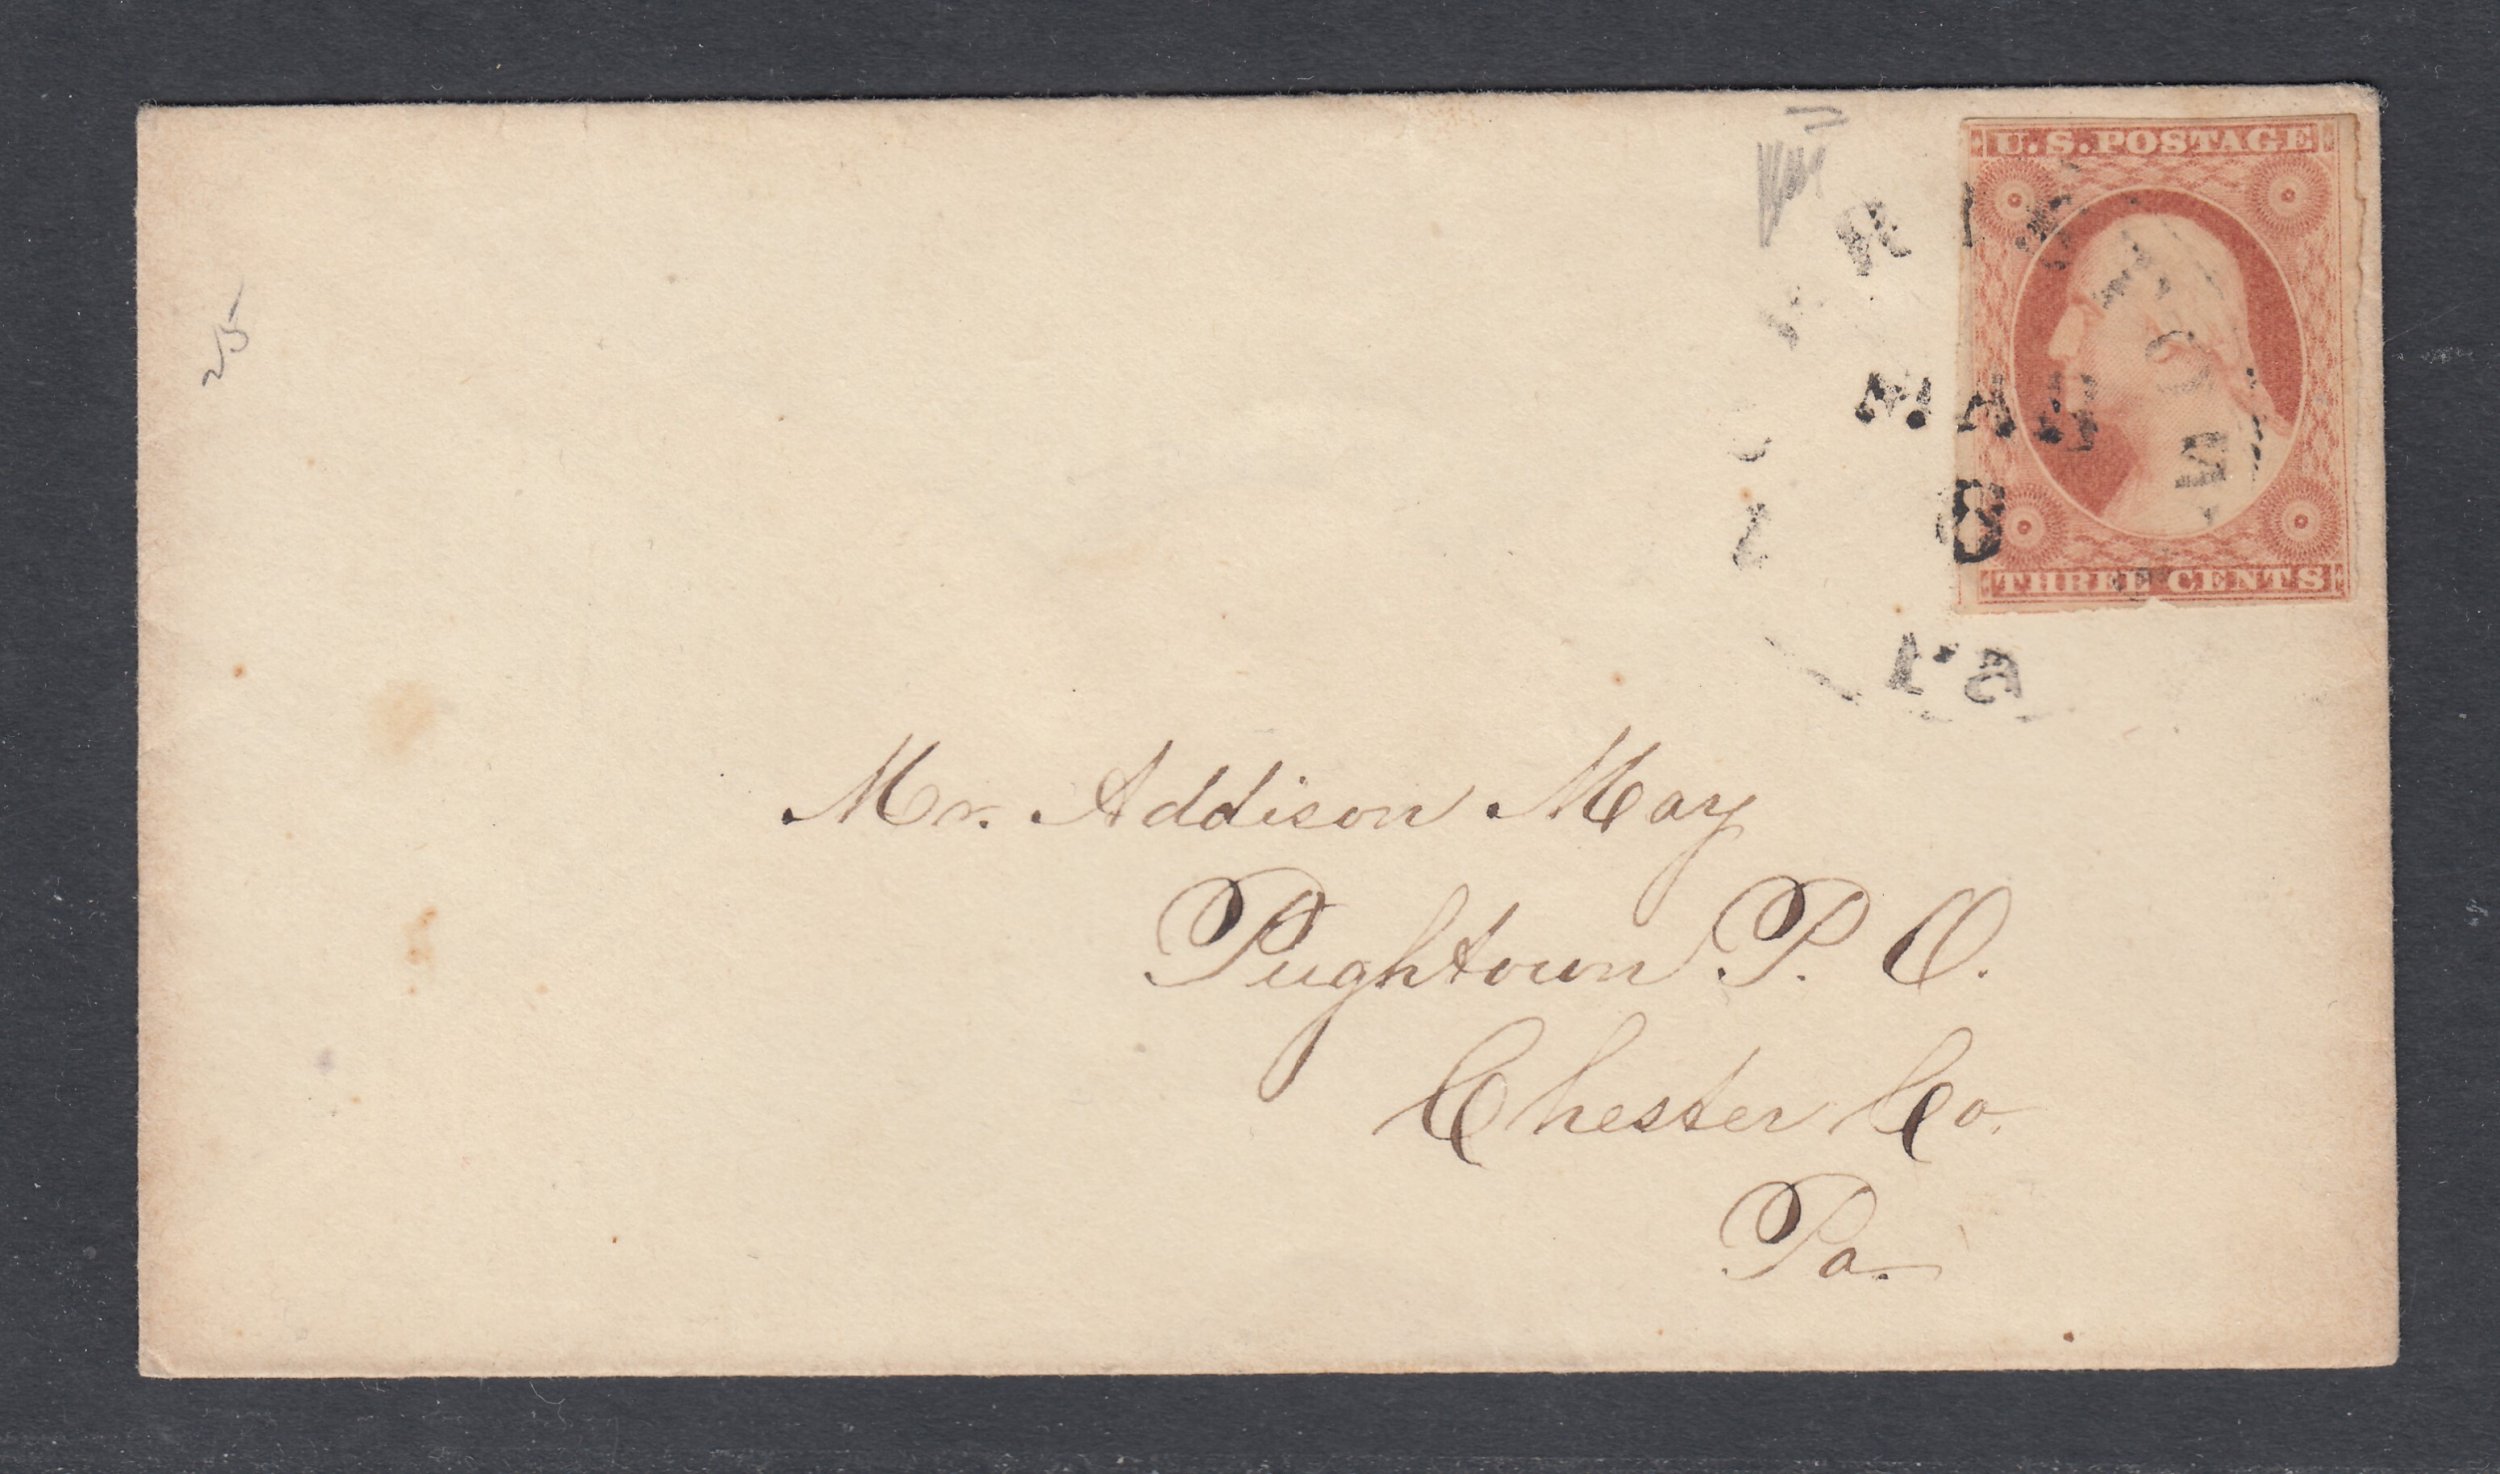 U.S. POSTAGE
MAR
8
THREE CENTS
PA
25
Mr. Addison May
Pughtown P. O.
Chester Co.
Pa.